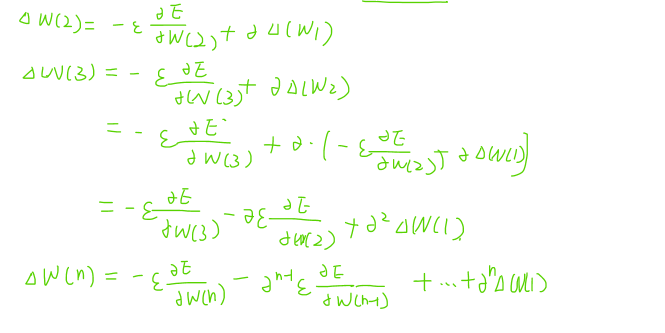 ΔW(2) = -ε ∂E/∂W(2) + ∂Δ(W1)
ΔW(3) = -ε ∂E/∂W(3) + ∂Δ(W2)
= -ε ∂E/∂W(3) + ∂·(-ε ∂E/∂W(2) + ∂ΔW(1)]
= -ε ∂E/∂W(3) - ∂ε ∂E/∂W(2) + ∂² ΔW(1)
ΔW(n) = -ε ∂E/∂W(n) - ∂ⁿ⁻¹ ε ∂E/∂W(n-1) + ... + ∂ⁿ ΔW(1)